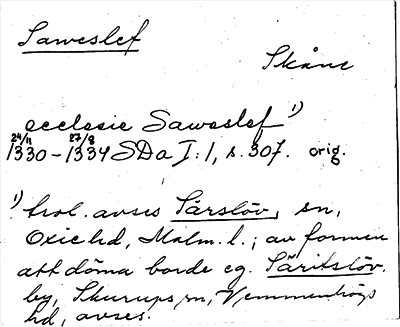 Saweslef
Skåne
ecclesie Saweslef 1)
24/11 1330 – 27/8 1334 SDa I:1, s. 307. orig.
1) trol. avses Särslöv, sn,
Oxie hd, Malm. l.; av formen
att döma borde eg. Säritslöv
by, Skurups sn, Vemmenhögs
hd, avses.